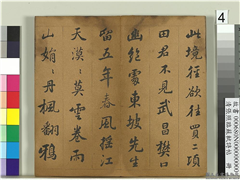 此境徑欲往買二頃
田君不見武昌樊口
幽絕處東坡先生
留五年春風搖江
天漠〻莫雲卷雨
山娟〻丹楓翻鴉
4